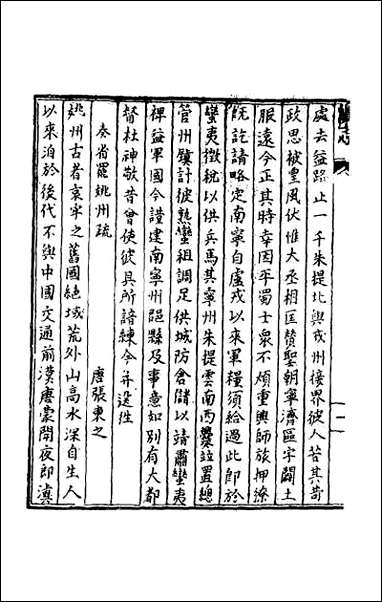 處去益路止一千朱提北與戎州接界彼人苦其苛
政思被皇風伏惟大丞相匡贊聖朝寧濟區宇闢土
服遠今正其時幸因平蜀士衆不煩重興師旅押獠
旣訖請略定南寧自盧戎以來軍糧須給過此即於
蠻夷徵稅以供兵馬其寧州朱提雲南西爨竝置總
管州鎮計彼熟蠻組調足供城防倉儲以靖肅蠻夷
裨益軍國今謹建南寧州郡縣及事意如別有大都
督杜神敬昔曾使彼具所諳練今并送徃
奏省罷姚州疏
唐張柬之
姚州古者哀牢之舊國絕域荒外山高水深自生人
以來洎於後代不與中國交通前漢唐蒙開夜郎滇